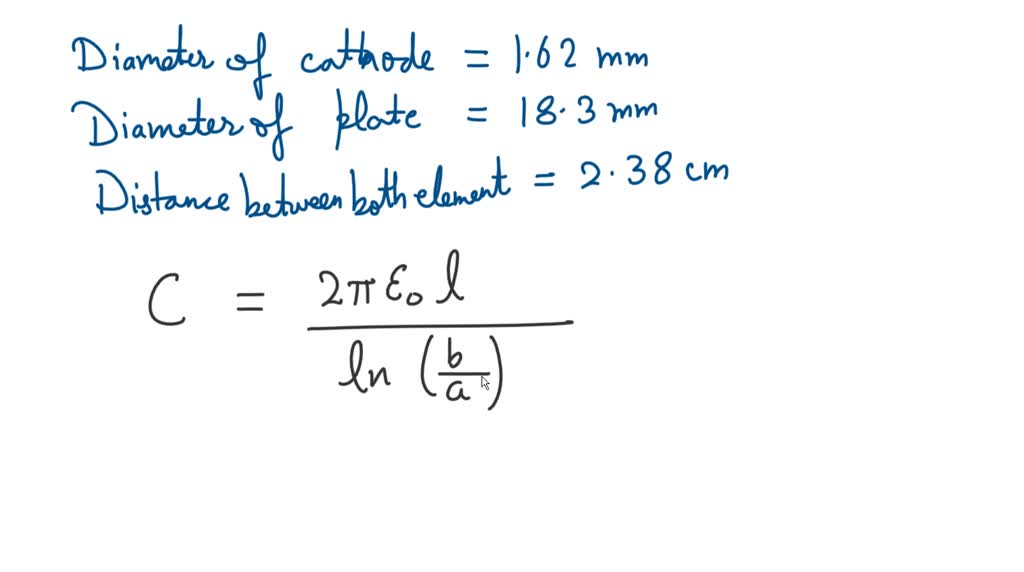 Diameter of cathode = 1.62 mm
Diameter of plate = 18.3 mm
Distance between both element = 2.38 cm
C = 2πε₀l / ln (b/a)